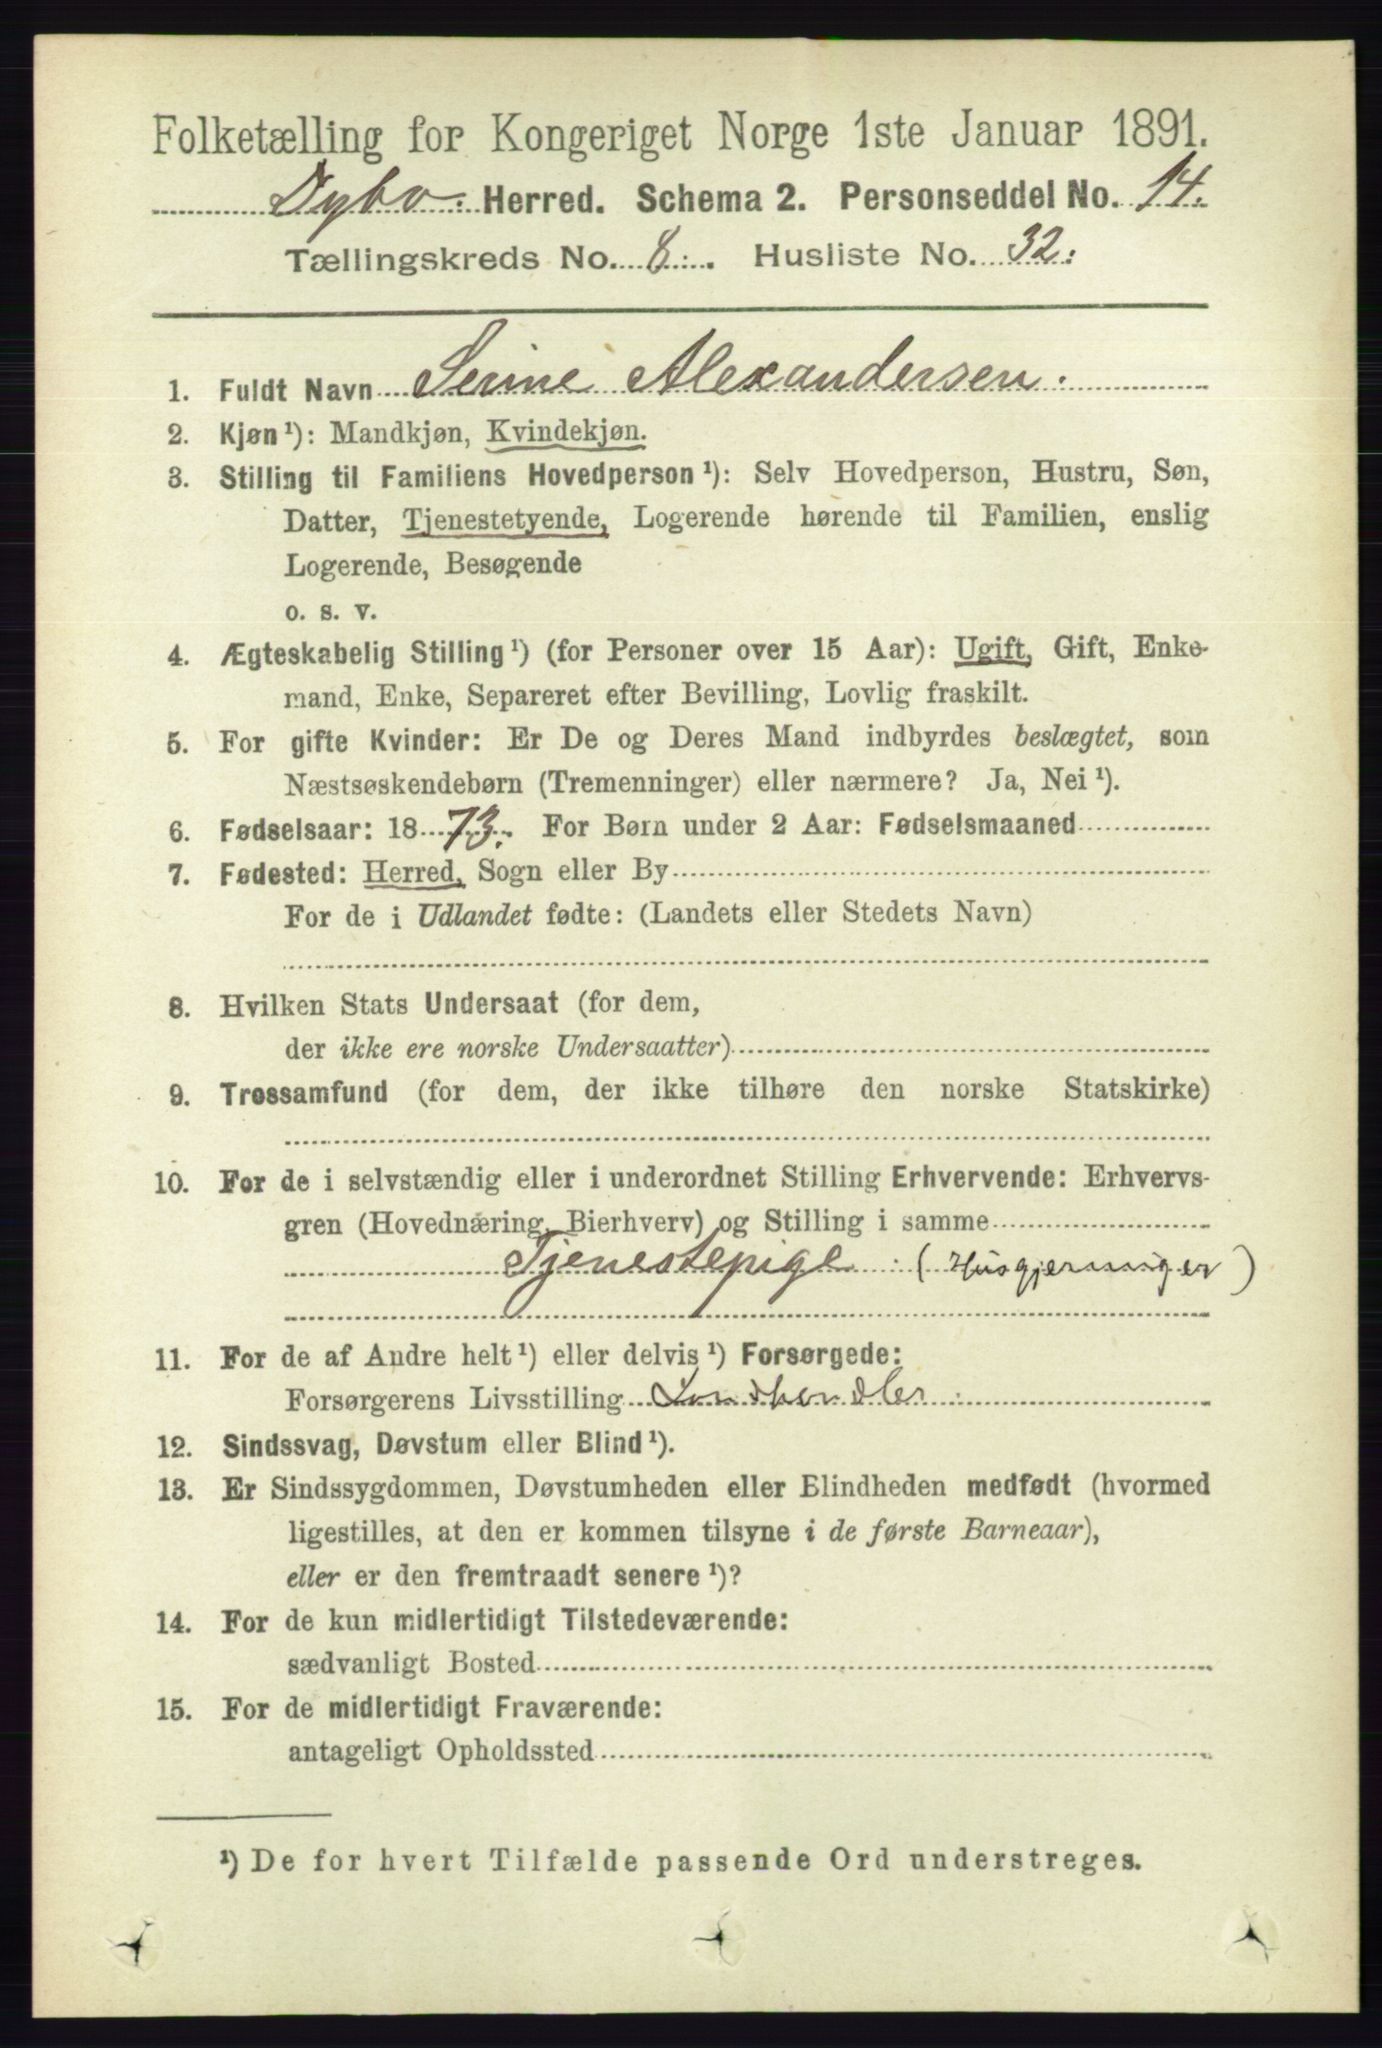 Folketælling for Kongeriget Norge 1ste Januar 1891.
Dybv. Herred. Schema 2. Personseddel No. 14.
Tællingskreds No. 8. Husliste No. 32.
1. Fuldt Navn Serine Alexandersen.
2. Kjøn ¹): Mandkjøn, Kvindekjøn.
3. Stilling til Familiens Hovedperson ¹): Selv Hovedperson, Hustru, Søn,
Datter, Tjenestetyende, Logerende hørende til Familien, enslig
Logerende, Besøgende
o. s. v.
4. Ægteskabelig Stilling ¹) (for Personer over 15 Aar): Ugift, Gift, Enke-
mand, Enke, Separeret efter Bevilling, Lovlig fraskilt.
5. For gifte Kvinder: Er De og Deres Mand indbyrdes beslægtet, som
Næstsøskendebørn (Tremenninger) eller nærmere? Ja, Nei ¹).
6. Fødselsaar: 1873. For Børn under 2 Aar: Fødselsmaaned
7. Fødested: Herred, Sogn eller By
For de i Udlandet fødte: (Landets eller Stedets Navn)
8. Hvilken Stats Undersaat (for dem,
der ikke ere norske Undersaatter)
9. Trossamfund (for dem, der ikke tilhøre den norske Statskirke)
10. For de i selvstændig eller i underordnet Stilling Erhvervende: Erhvervs-
gren (Hovednæring, Bierhverv) og Stilling i samme
Tjenestepige (Husgjerninger)
11. For de af Andre helt ¹) eller delvis ¹) Forsørgede:
Forsørgerens Livsstilling Landhandler
12. Sindssvag, Døvstum eller Blind ¹).
13. Er Sindssygdommen, Døvstumheden eller Blindheden medfødt (hvormed
ligestilles, at den er kommen tilsyne i de første Barneaar),
eller er den fremtraadt senere ¹)?
14. For de kun midlertidigt Tilstedeværende:
sædvanligt Bosted
15. For de midlertidigt Fraværende:
antageligt Opholdssted
¹) De for hvert Tilfælde passende Ord understreges.